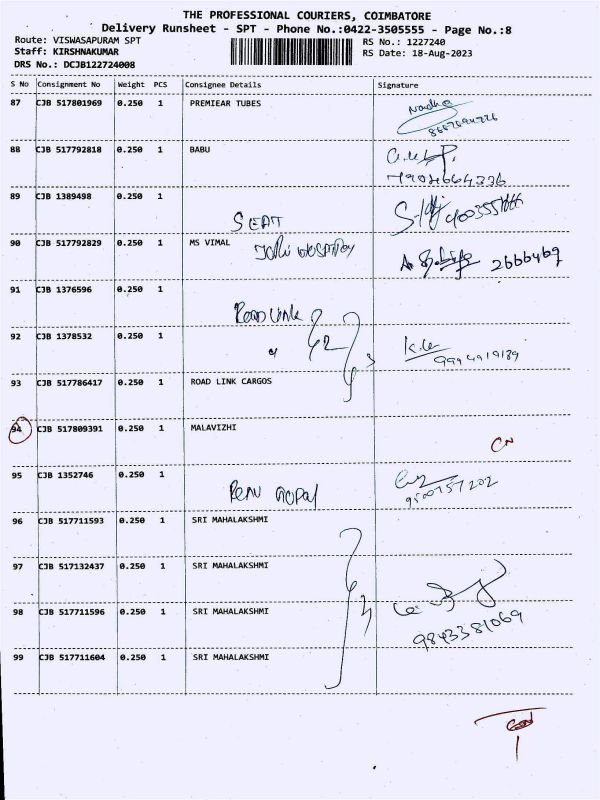 THE PROFESSIONAL COURIERS, COIMBATORE
Delivery Runsheet - SPT - Phone No.:0422-3505555 - Page No.:8
Route: VISWASAPURAM SPT RS No.: 1227240
Staff: KIRSHNAKUMAR RS Date: 18-Aug-2023
DRS No.: DCJB122724008
S No Consignment No Weight PCS Consignee Details Signature
87 CJB 517801969 0.250 1 PREMIEAR TUBES
88 CJB 517792818 0.250 1 BABU
89 CJB 1389498 0.250 1
SEAT
90 CJB 517792829 0.250 1 MS VIMAL
2666469
91 CJB 1376596 0.250 1
Road Link
92 CJB 1378532 0.250 1
93 CJB 517786417 0.250 1 ROAD LINK CARGOS
94 CJB 517809391 0.250 1 MALAVIZHI
CN
95 CJB 1352746 0.250 1
96 CJB 517711593 0.250 1 SRI MAHALAKSHMI
97 CJB 517132437 0.250 1 SRI MAHALAKSHMI
98 CJB 517711596 0.250 1 SRI MAHALAKSHMI
9843381069
99 CJB 517711604 0.250 1 SRI MAHALAKSHMI